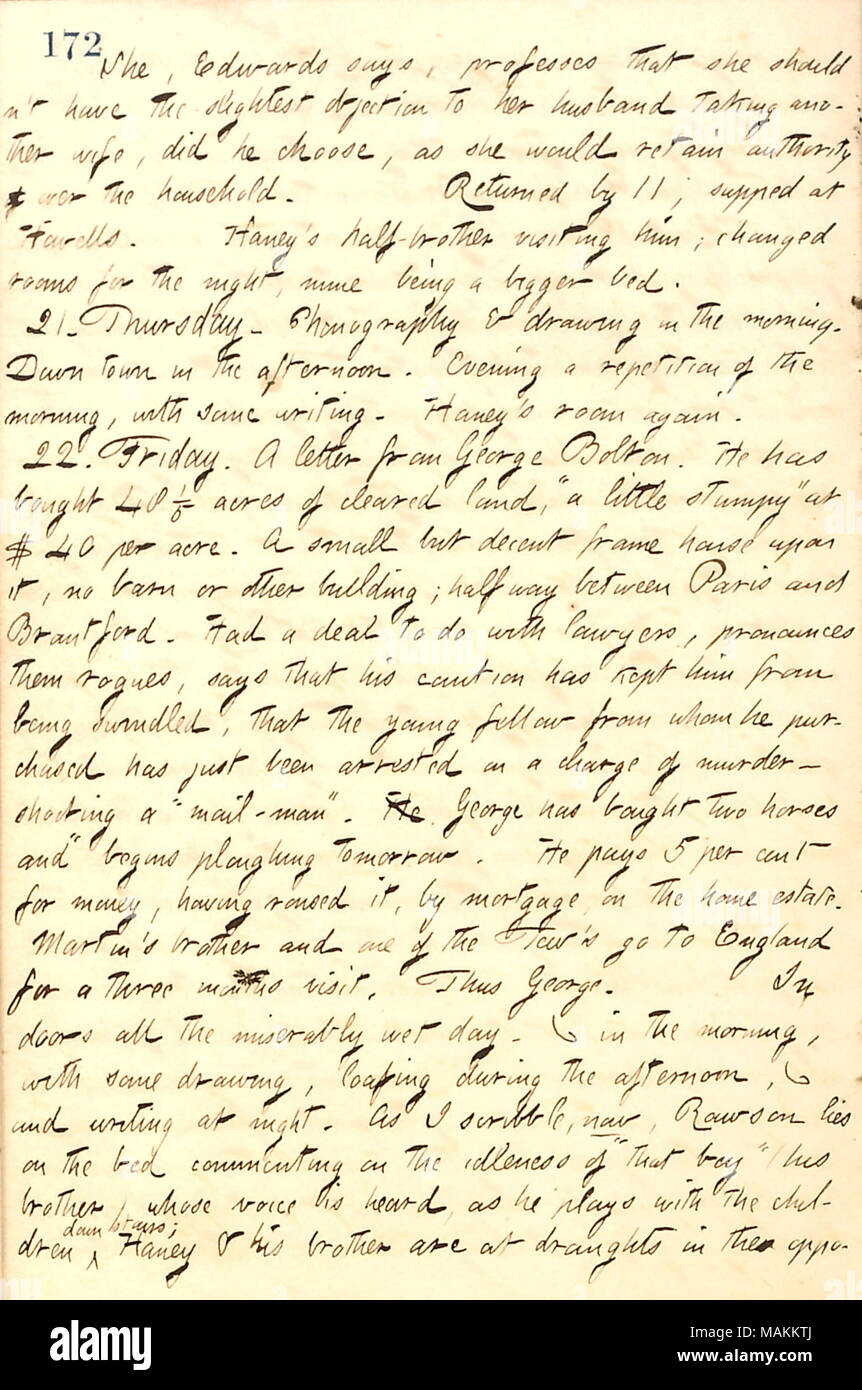 172
She, Edwards says, professes that she should
n't have the slightest objection to her husband taking ano-
ther wife, did he choose, as she would retain authority
over the household. Returned by 11, supped at
Howells. Haney's half-brother visiting him; changed
rooms for the night, mine being a bigger bed.
21. Thursday. Phonography & drawing in the morning.
Down town in the afternoon. Evening a repetition of the
morning, with some writing. Haney's room again.
22. Friday. A letter from George Bolton. He has
bought 48 1/5 acres of cleared land, "a little stumpy" at
$ 40 per acre. A small but decent frame house upon
it, no barn or other building; half way between Paris and
Brantford. Had a deal to do with lawyers, pronounces
them rogues, says that his caution has kept him from
being swindled, that the young fellow from whom he pur-
chased has just been arrested on a charge of murder—
shooting a "mail-man". He George has bought two horses
and "begins ploughing tomorrow. He pays 5 per cent
for money, having roused it, by mortgage on the home estate.
Martin's brother and one of the Tew's go to England
for a three months visit. Thus George. In
doors all the miserably wet day. in the morning,
with some drawing, loafing during the afternoon,
and writing at night. As I scribble, now, Rawson lies
on the bed commenting on the idleness of "that boy" (his
brother) whose voice is heard, as he plays with the chil-
dren down stairs; Haney & his brother are at draughts in the oppo-
alamy
Image ID: MAKKTJ
www.alamy.com